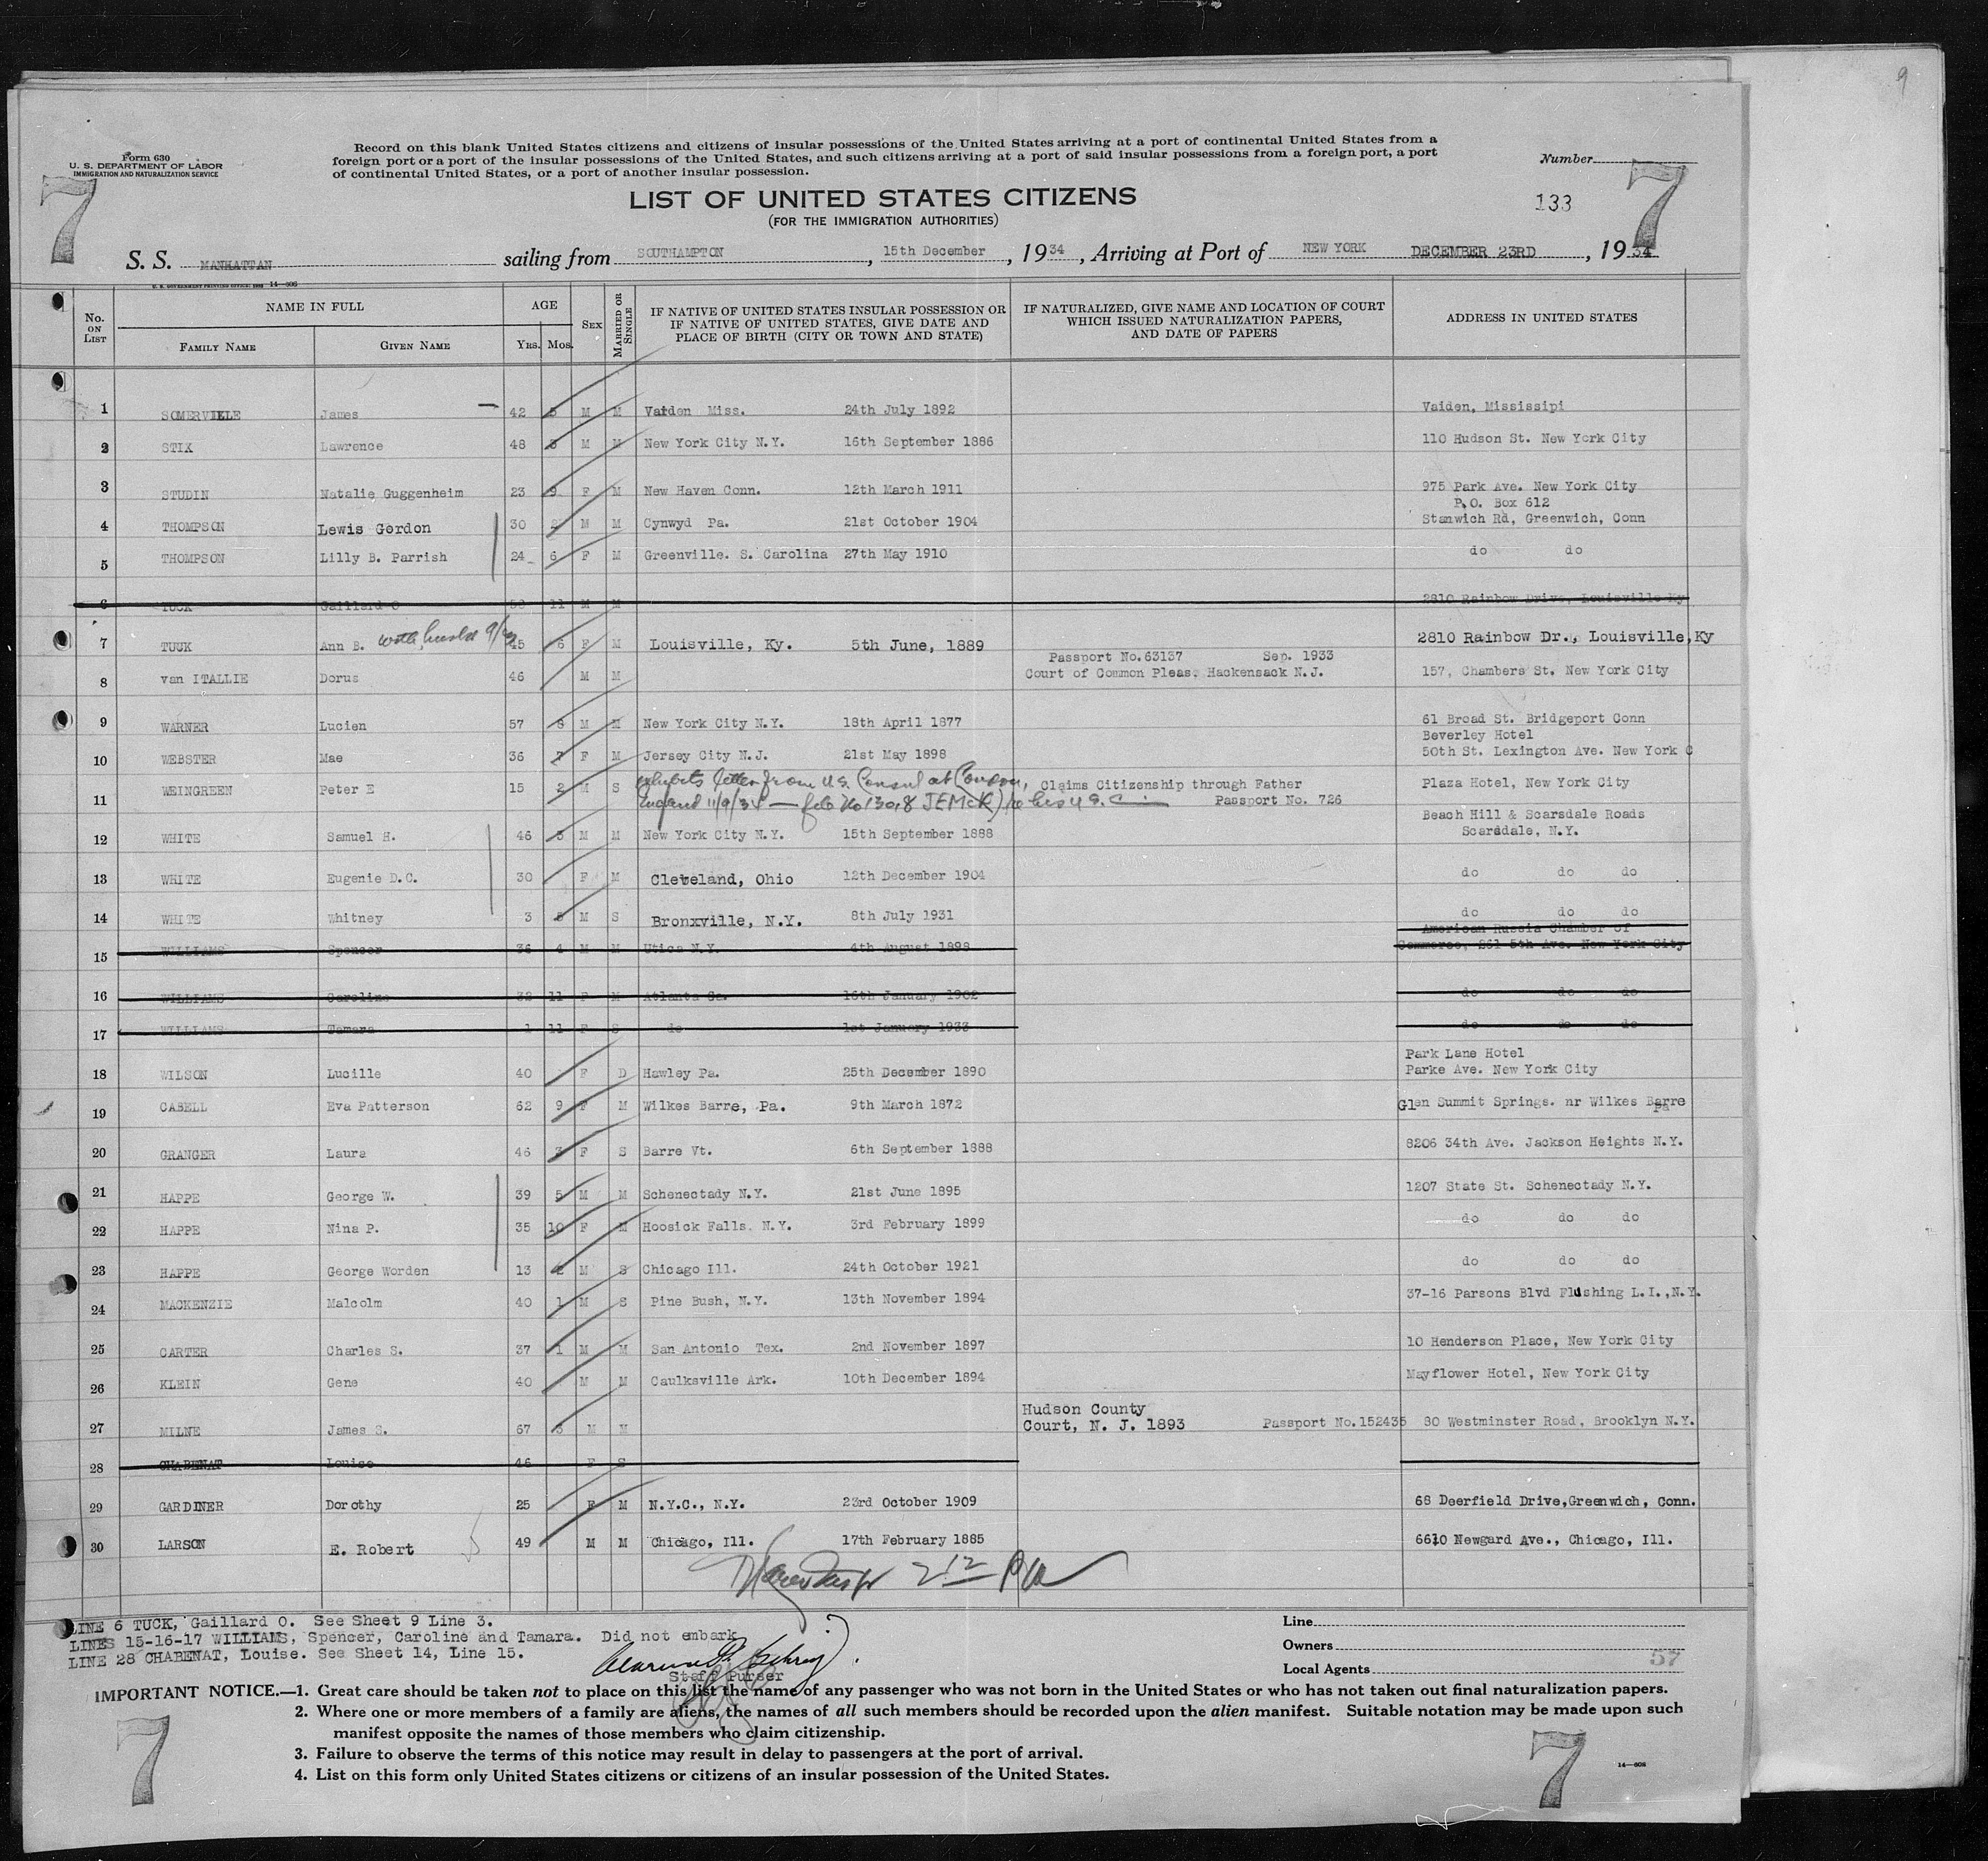 9
Form 630
U. S. DEPARTMENT OF LABOR
IMMIGRATION AND NATURALIZATION SERVICE
Record on this blank United States citizens and citizens of insular possessions of the United States arriving at a port of continental United States from a
foreign port or a port of the insular possessions of the United States, and such citizens arriving at a port of said insular possessions from a foreign port, a port
of continental United States, or a port of another insular possession.
Number
7
7
LIST OF UNITED STATES CITIZENS
(FOR THE IMMIGRATION AUTHORITIES)
133
S. S. MANHATTAN sailing from SOUTHAMPTON, 15th December, 1934, Arriving at Port of NEW YORK DECEMBER 23RD, 1934
U. S. GOVERNMENT PRINTING OFFICE: 1933 14—606
No. ON LIST NAME IN FULL FAMILY NAME GIVEN NAME AGE YRS. MOS. SEX MARRIED OR SINGLE IF NATIVE OF UNITED STATES INSULAR POSSESSION OR IF NATIVE OF UNITED STATES, GIVE DATE AND PLACE OF BIRTH (CITY OR TOWN AND STATE) IF NATURALIZED, GIVE NAME AND LOCATION OF COURT WHICH ISSUED NATURALIZATION PAPERS, AND DATE OF PAPERS ADDRESS IN UNITED STATES
1 SOMERVILLE James 42 5 M M Vaiden Miss. 24th July 1892 Vaiden, Mississipi
2 STIX Lawrence 48 3 M M New York City N.Y. 16th September 1886 110 Hudson St. New York City
3 STUDIN Natalie Guggenheim 23 9 F M New Haven Conn. 12th March 1911 975 Park Ave. New York City
P.O. Box 612
4 THOMPSON Lewis Gordon 30 2 M M Cynwyd Pa. 21st October 1904 Stanwich Rd, Greenwich, Conn
5 THOMPSON Lilly B. Parrish 24 6 F M Greenville. S. Carolina 27th May 1910 do do
6 TUCK Gaillard O 58 11 M M 2810 Rainbow Drive, Louisville Ky
7 TUCK Ann B. with husband 9/ 45 6 F M Louisville, Ky. 5th June, 1889 2810 Rainbow Dr., Louisville, Ky
Passport No. 63137 Sep. 1933
8 van ITALLIE Dorus 46 M M Court of Common Pleas. Hackensack N.J. 157, Chambers St. New York City
9 WARNER Lucien 57 8 M M New York City N.Y. 18th April 1877 61 Broad St. Bridgeport Conn
Beverley Hotel
10 WEBSTER Mae 36 7 F M Jersey City N.J. 21st May 1898 50th St. Lexington Ave. New York C
11 WEINGREEN Peter E 15 2 M S exhibits letter from U.S. Consul at London, Claims Citizenship through Father Plaza Hotel, New York City
England 11/9/34 — file No 130.8 JEMcK) re his U.S. Passport No. 726
Beach Hill & Scarsdale Roads
12 WHITE Samuel H. 46 3 M M New York City N.Y. 15th September 1888 Scarsdale, N.Y.
13 WHITE Eugenie D.C. 30 F M Cleveland, Ohio 12th December 1904 do do do
14 WHITE Whitney 3 5 M S Bronxville, N.Y. 8th July 1931 do do do
American Russia Chamber of
15 WILLIAMS Spencer 36 4 M M Utica N.Y. 4th August 1898 Commerce, 261 5th Ave. New York City
16 WILLIAMS Caroline 32 11 F M Atlanta Ga. 16th January 1902 do do do
17 WILLIAMS Tamara 1 11 F S do 1st January 1933 do do do
Park Lane Hotel
18 WILSON Lucille 40 F D Hawley Pa. 25th December 1890 Parke Ave. New York City
19 CABELL Eva Patterson 62 9 F M Wilkes Barre, Pa. 9th March 1872 Glen Summit Springs. nr Wilkes Barre Pa
20 GRANGER Laura 46 3 F S Barre Vt. 6th September 1888 8206 34th Ave. Jackson Heights N.Y.
21 HAPPE George W. 39 5 M M Schenectady N.Y. 21st June 1895 1207 State St. Schenectady N.Y.
22 HAPPE Nina P. 35 10 F M Hoosick Falls. N.Y. 3rd February 1899 do do do
23 HAPPE George Worden 13 2 M S Chicago Ill. 24th October 1921 do do do
24 MACKENZIE Malcolm 40 1 M S Pine Bush, N.Y. 13th November 1894 37-16 Parsons Blvd Flushing L.I.,N.Y.
25 CARTER Charles S. 37 1 M M San Antonio Tex. 2nd November 1897 10 Henderson Place, New York City
26 KLEIN Gene 40 M M Caulksville Ark. 10th December 1894 Mayflower Hotel, New York City
Hudson County
27 MILNE James S. 67 3 M M Court, N. J. 1893 Passport No. 152435 80 Westminster Road, Brooklyn N.Y.
28 CHABENAT Louise 46 F S
29 GARDINER Dorothy 25 F M N.Y.C., N.Y. 23rd October 1909 68 Deerfield Drive, Greenwich, Conn.
30 LARSON E. Robert 49 M M Chicago, Ill. 17th February 1885 6610 Newgard Ave., Chicago, Ill.
LINE 6 TUCK, Gaillard O. See Sheet 9 Line 3.
LINES 15-16-17 WILLIAMS, Spencer, Caroline and Tamara. Did not embark
LINE 28 CHABENAT, Louise. See Sheet 14, Line 15.
Staff Purser
Line
Owners
Local Agents
57
IMPORTANT NOTICE.—1. Great care should be taken not to place on this list the name of any passenger who was not born in the United States or who has not taken out final naturalization papers.
2. Where one or more members of a family are aliens, the names of all such members should be recorded upon the alien manifest. Suitable notation may be made upon such
manifest opposite the names of those members who claim citizenship.
3. Failure to observe the terms of this notice may result in delay to passengers at the port of arrival.
4. List on this form only United States citizens or citizens of an insular possession of the United States.
7
7
14—606